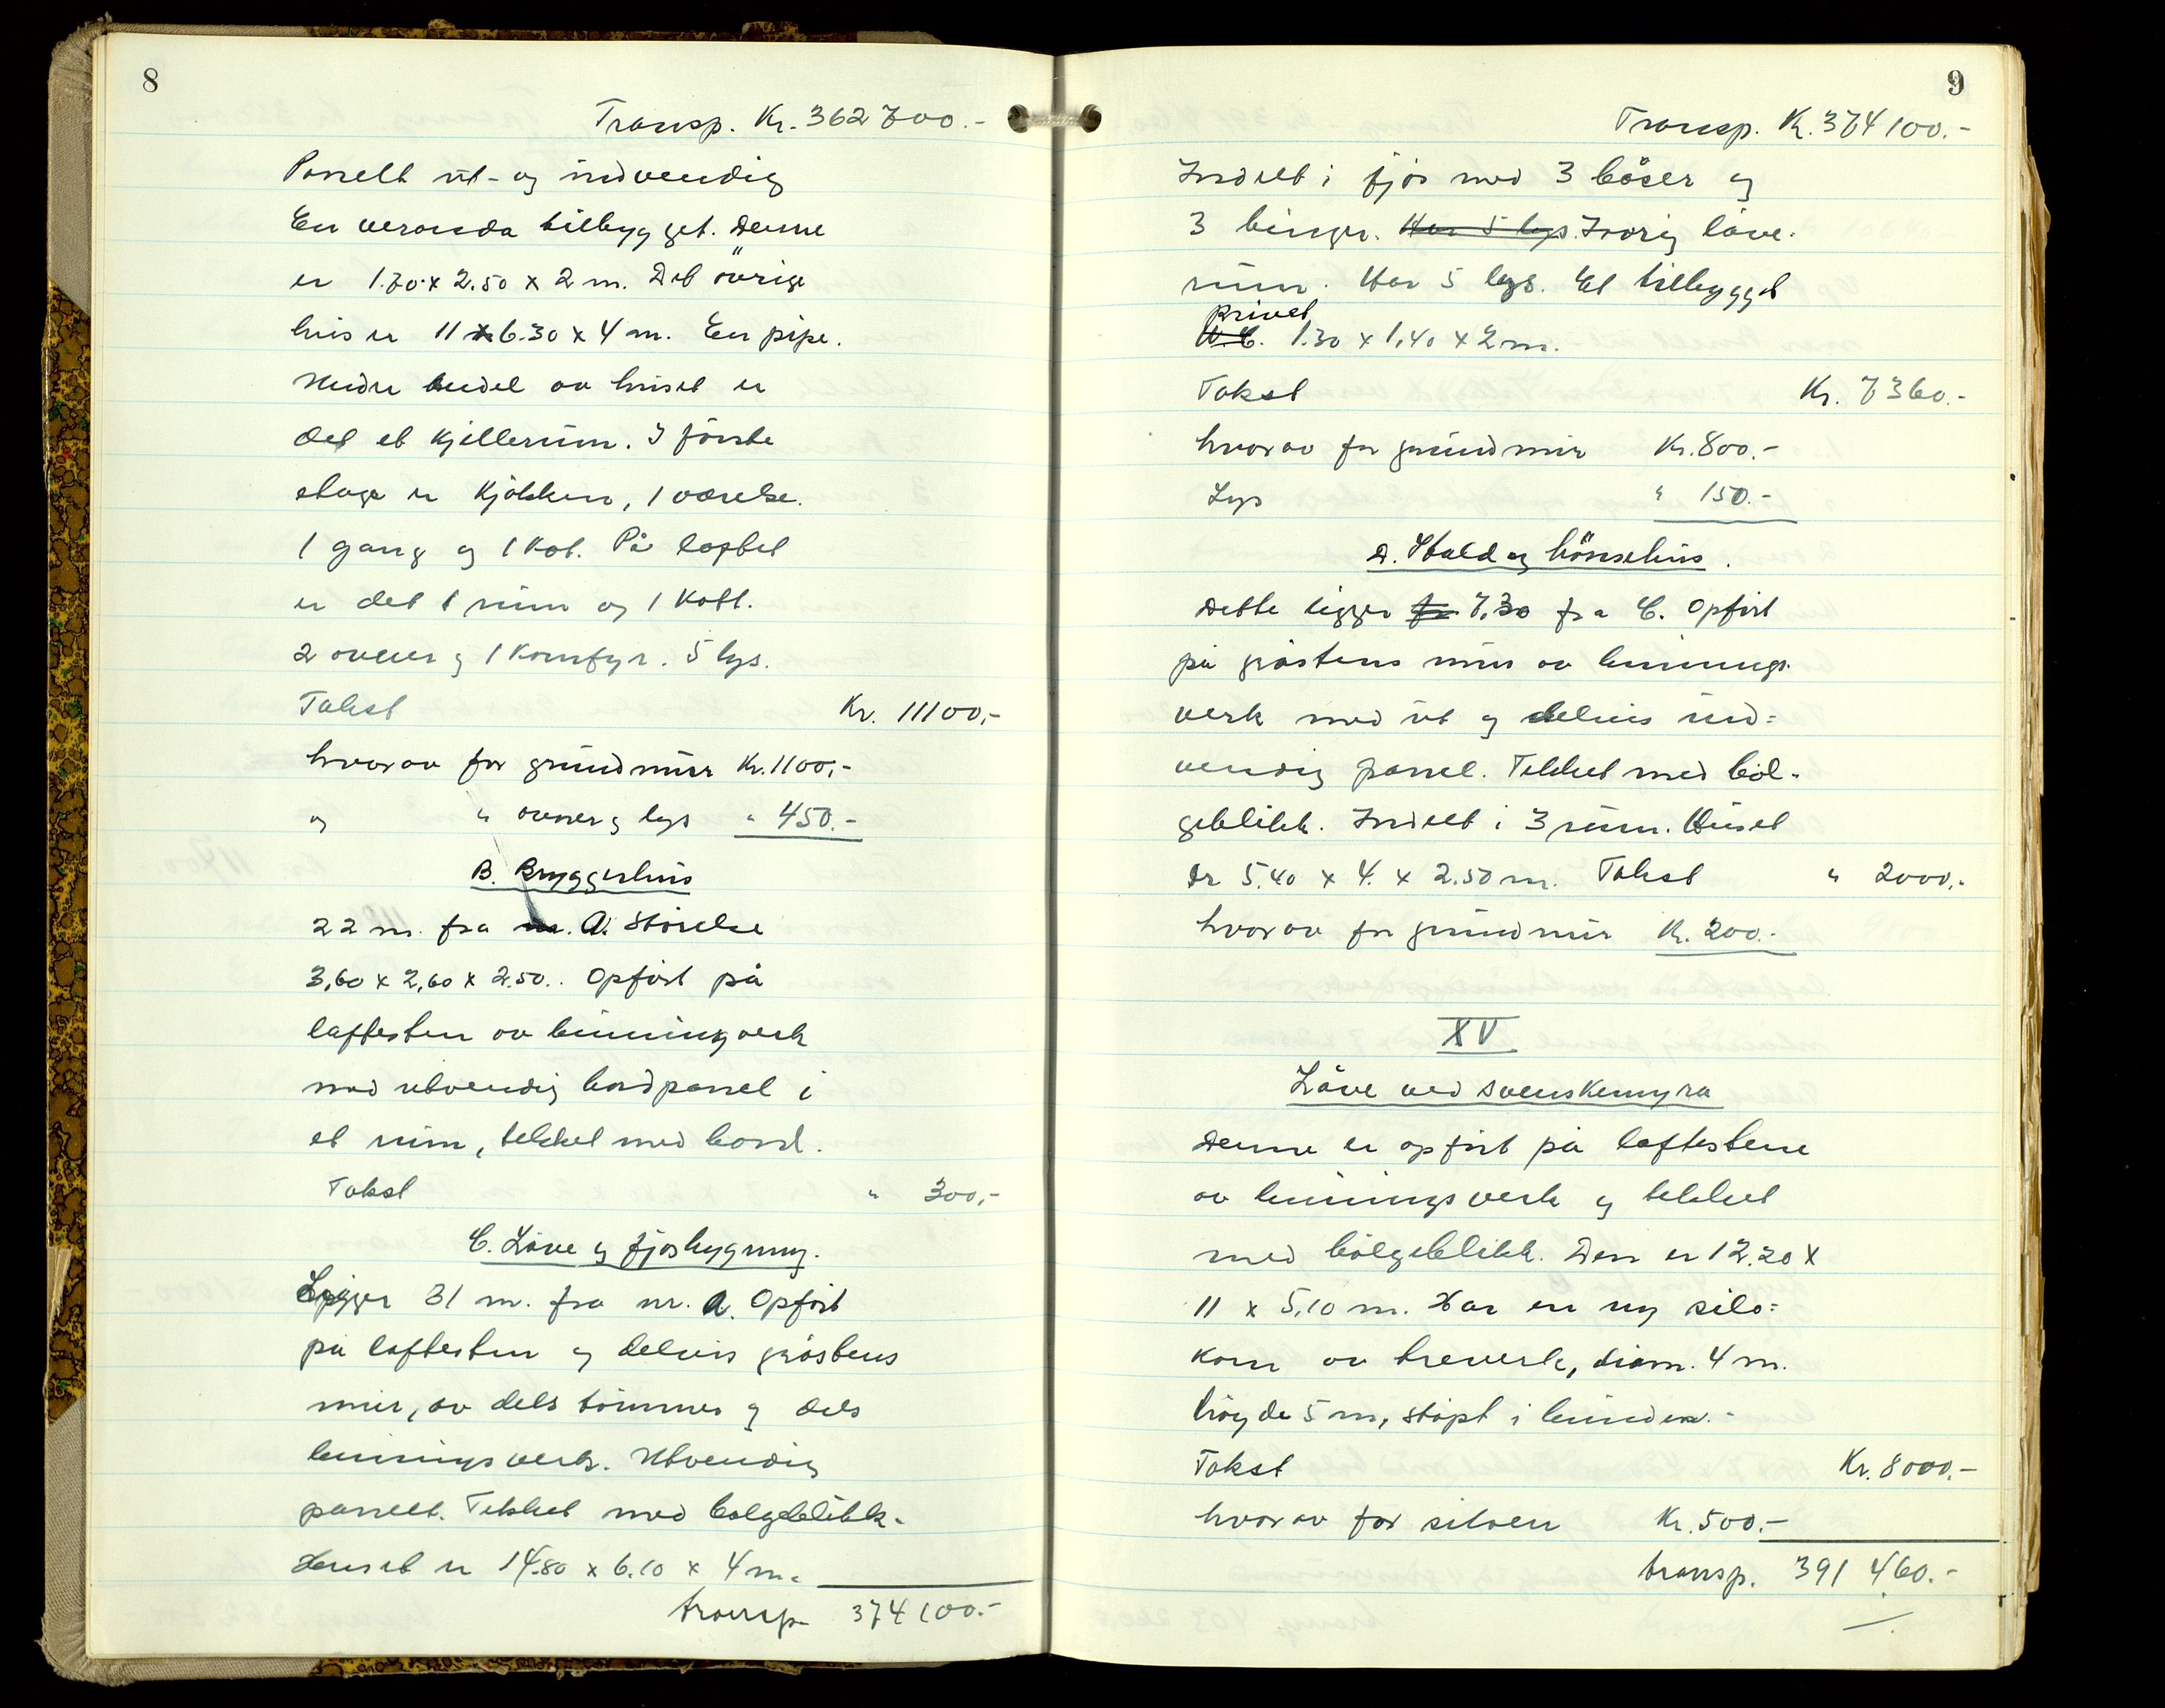 8
Transp. Kr. 362700.-
Panelt ut- og indvendig
En veranda tilbygget. Denne
er 1.70 x 2.50 x 2 m. Det øvrige
hus er 11 x 6.30 x 4 m. En pipe.
Under endel av huset er
det et kjellerum. I første
etage er kjøkken, 1 værelse.
1 gang og 1 kot. På loftet
er det 1 rum og 1 kott.
2 ovner og 1 komfyr. 5 lys.
Takst Kr. 11100,-
hvorav for grundmur Kr. 1100,-
og " ovner og lys " 450.-
B. Bryggerhus
22 m. fra nr. A. Størelse
3,60 x 2,60 x 2.50. Opført på
løftesten av binningverk
med utvendig bordpanel i
et rum, tekket med bord.
Takst " 300,-
C. Låve og fjøsbygning.
Ligger 31 m. fra nr. A. Opført
på løftesten og delvis gråstens
mur, av dels tømmer og dels
binningsverk. Utvendig
panelt. Tekket med bølgeblikk.
Huset er 14.80 x 6.10 x 4 m.
transp. 374100.-
9
Transp. Kr. 374100.-
Inndelt i fjøs med 3 båser og
3 binger. Har 5 lys. Forøvrig låve-
rum. Har 5 lys. Et tilbygget
privet
W.C. 1.30 x 1,40 x 2 m.
Takst Kr. 7360.-
hvorav for grundmur Kr. 800.-
Lys " 150.-
D. Stald og hönsehus.
Dette ligger fr 7,30 fra C. Opført
på gråstens mur av binnings-
verk med ut og delvis ind=
vendig panel. Tekket med böl-
geblikk. Inndelt i 3 rum. Huset
er 5.40 x 4. x 2.50 m. Takst " 2000.-
hvorav for grundmur Kr. 200.-
XV
Låve ved Svenskemyra
Denne er opført på løftestene
av binningsverk og tekket
med bølgeblikk. Den er 12.20 x
11 x 5,10 m. Har en ny silo=
kom av treverk, diam. 4 m.
høyde 5 m, støpt i bunden.-
Takst Kr. 8000.-
hvorav for siloen Kr. 500.-
transp. 391 460.-